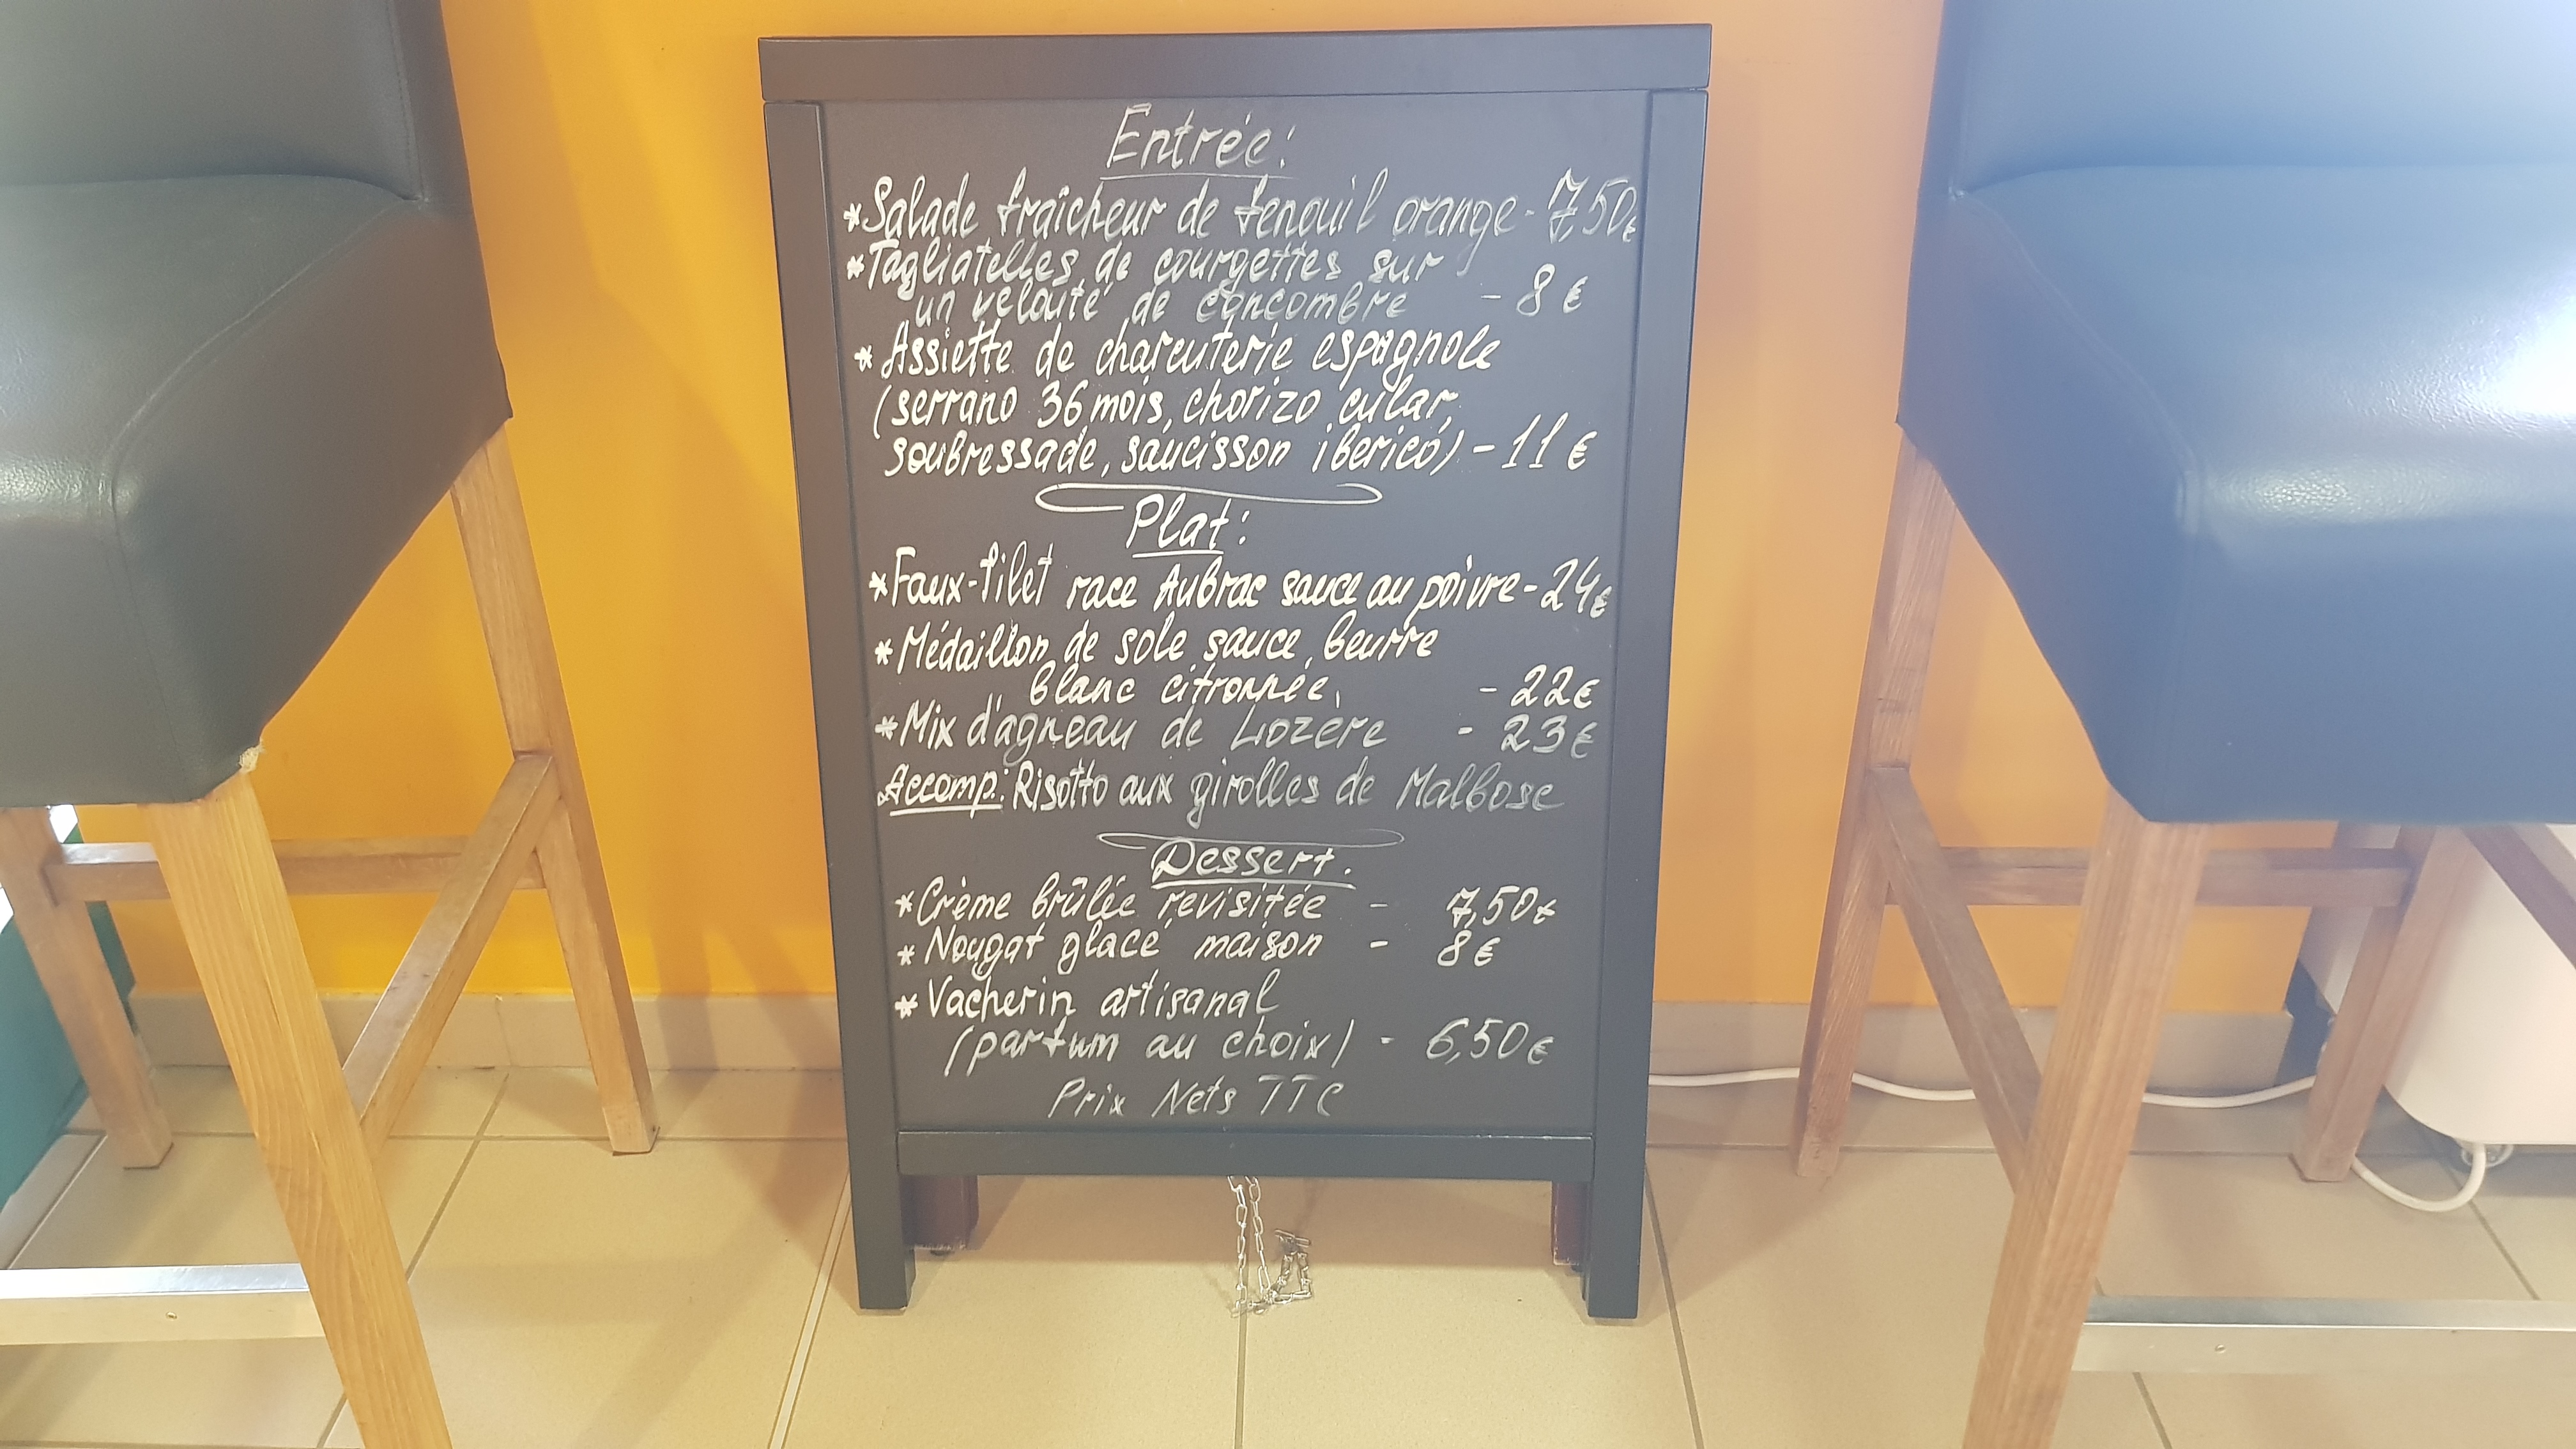 Entrée:
*Salade fraîcheur de fenouil orange - 7,50€
*Tagliatelles de courgettes sur
un velouté de concombre - 8 €
* Assiette de charcuterie espagnole
(serrano 36 mois, chorizo cular,
soubressade, saucisson iberico) - 11 €
Plat:
*Faux-filet race Aubrac sauce au poivre - 24€
*Médaillon de sole sauce beurre
blanc citronnée - 22€
*Mix d'agneau de Lozère - 23€
Accomp.: Risotto aux girolles de Malbosc
Dessert.
*Crème brûlée revisitée - 7,50€
* Nougat glacé maison - 8€
* Vacherin artisanal
(parfum au choix) - 6,50€
Prix Nets TTC